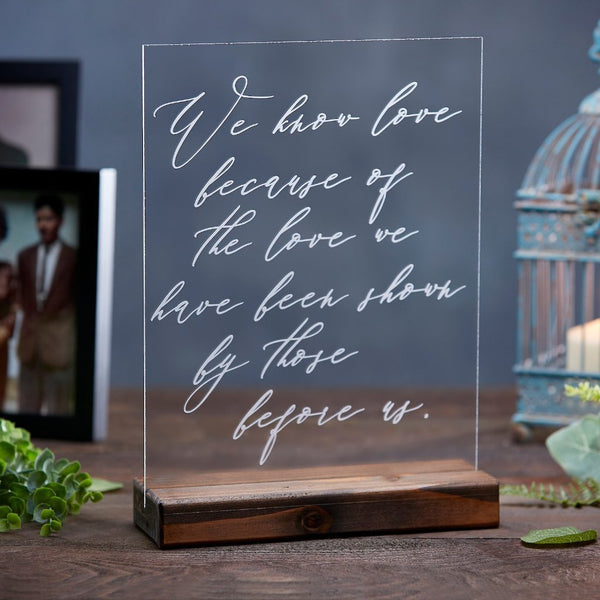 We know love
because of
the love we
have been shown
by those
before us.